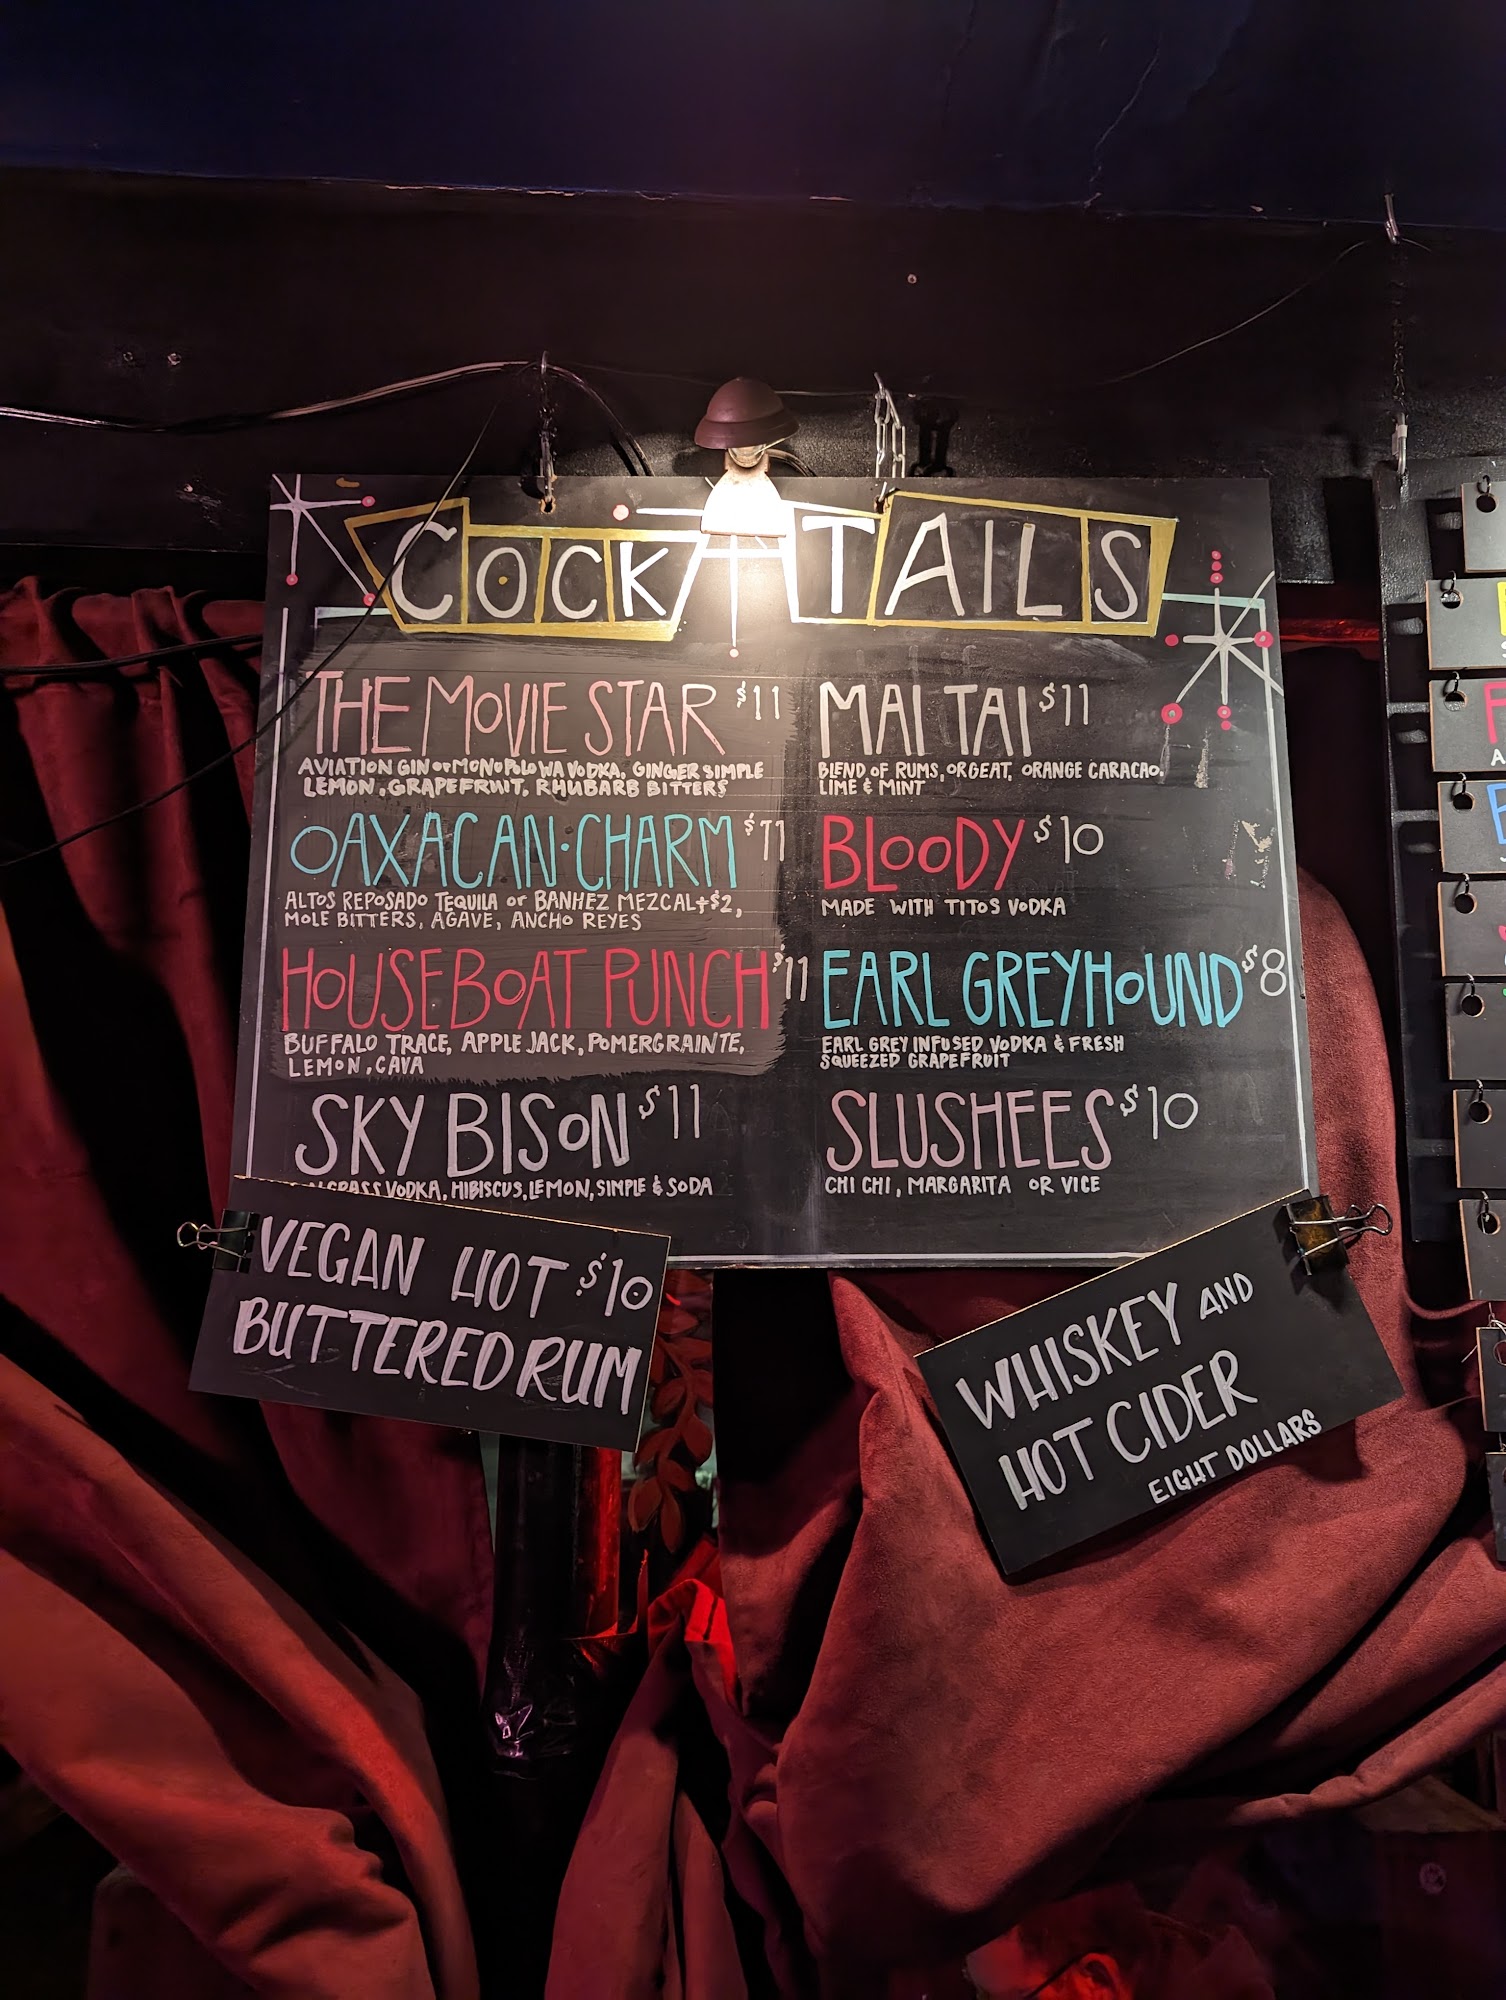 COCKTAILS
THE MOVIE STAR $11
AVIATION GIN or MONOPOLOWA VODKA, GINGER SIMPLE
LEMON, GRAPEFRUIT, RHUBARB BITTERS
OAXACAN·CHARM $11
ALTOS REPOSADO TEQUILA or BANHEZ MEZCAL+$2,
MOLE BITTERS, AGAVE, ANCHO REYES
HOUSEBOAT PUNCH $11
BUFFALO TRACE, APPLE JACK, POMERGRAINTE,
LEMON, CAVA
SKY BISON $11
GRASS VODKA, HIBISCUS, LEMON, SIMPLE & SODA
MAI TAI $11
BLEND OF RUMS, ORGEAT, ORANGE CARACAO.
LIME & MINT
BLOODY $10
MADE WITH TITOS VODKA
EARL GREYHOUND $8
EARL GREY INFUSED VODKA & FRESH
SQUEEZED GRAPEFRUIT
SLUSHEES $10
CHI CHI, MARGARITA OR VICE
VEGAN HOT $10
BUTTERED RUM
WHISKEY AND
HOT CIDER
EIGHT DOLLARS